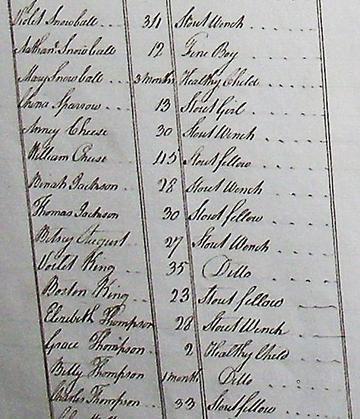 Violet Snowball . . 34 Stout Wench . . .
Nathan. Snowball 12 Fine Boy . . . .
Mary Snowball . . 3 months Healthy Child . . .
China Sparrow . . . 13 Stout Girl . . .
Anney Cheese . . . 30 Stout Wench . . .
William Cheese . . . 45 Stout fellow . . .
Binah Jackson . . . 28 Stout Wench . . .
Thomas Jackson 30 Stout fellow . . .
Betsey August . . . 27 Stout Wench . . .
Violet King . . . 35 Ditto . . .
Boston King . . . 23 Stout fellow
Elizibeth Thompson 28 Stout Wench . . .
Grace Thompson . . 2 Healthy Child
Betty Thompson 1 month Ditto . . .
Charles Thompson . . . 33 Stout fellow . . .